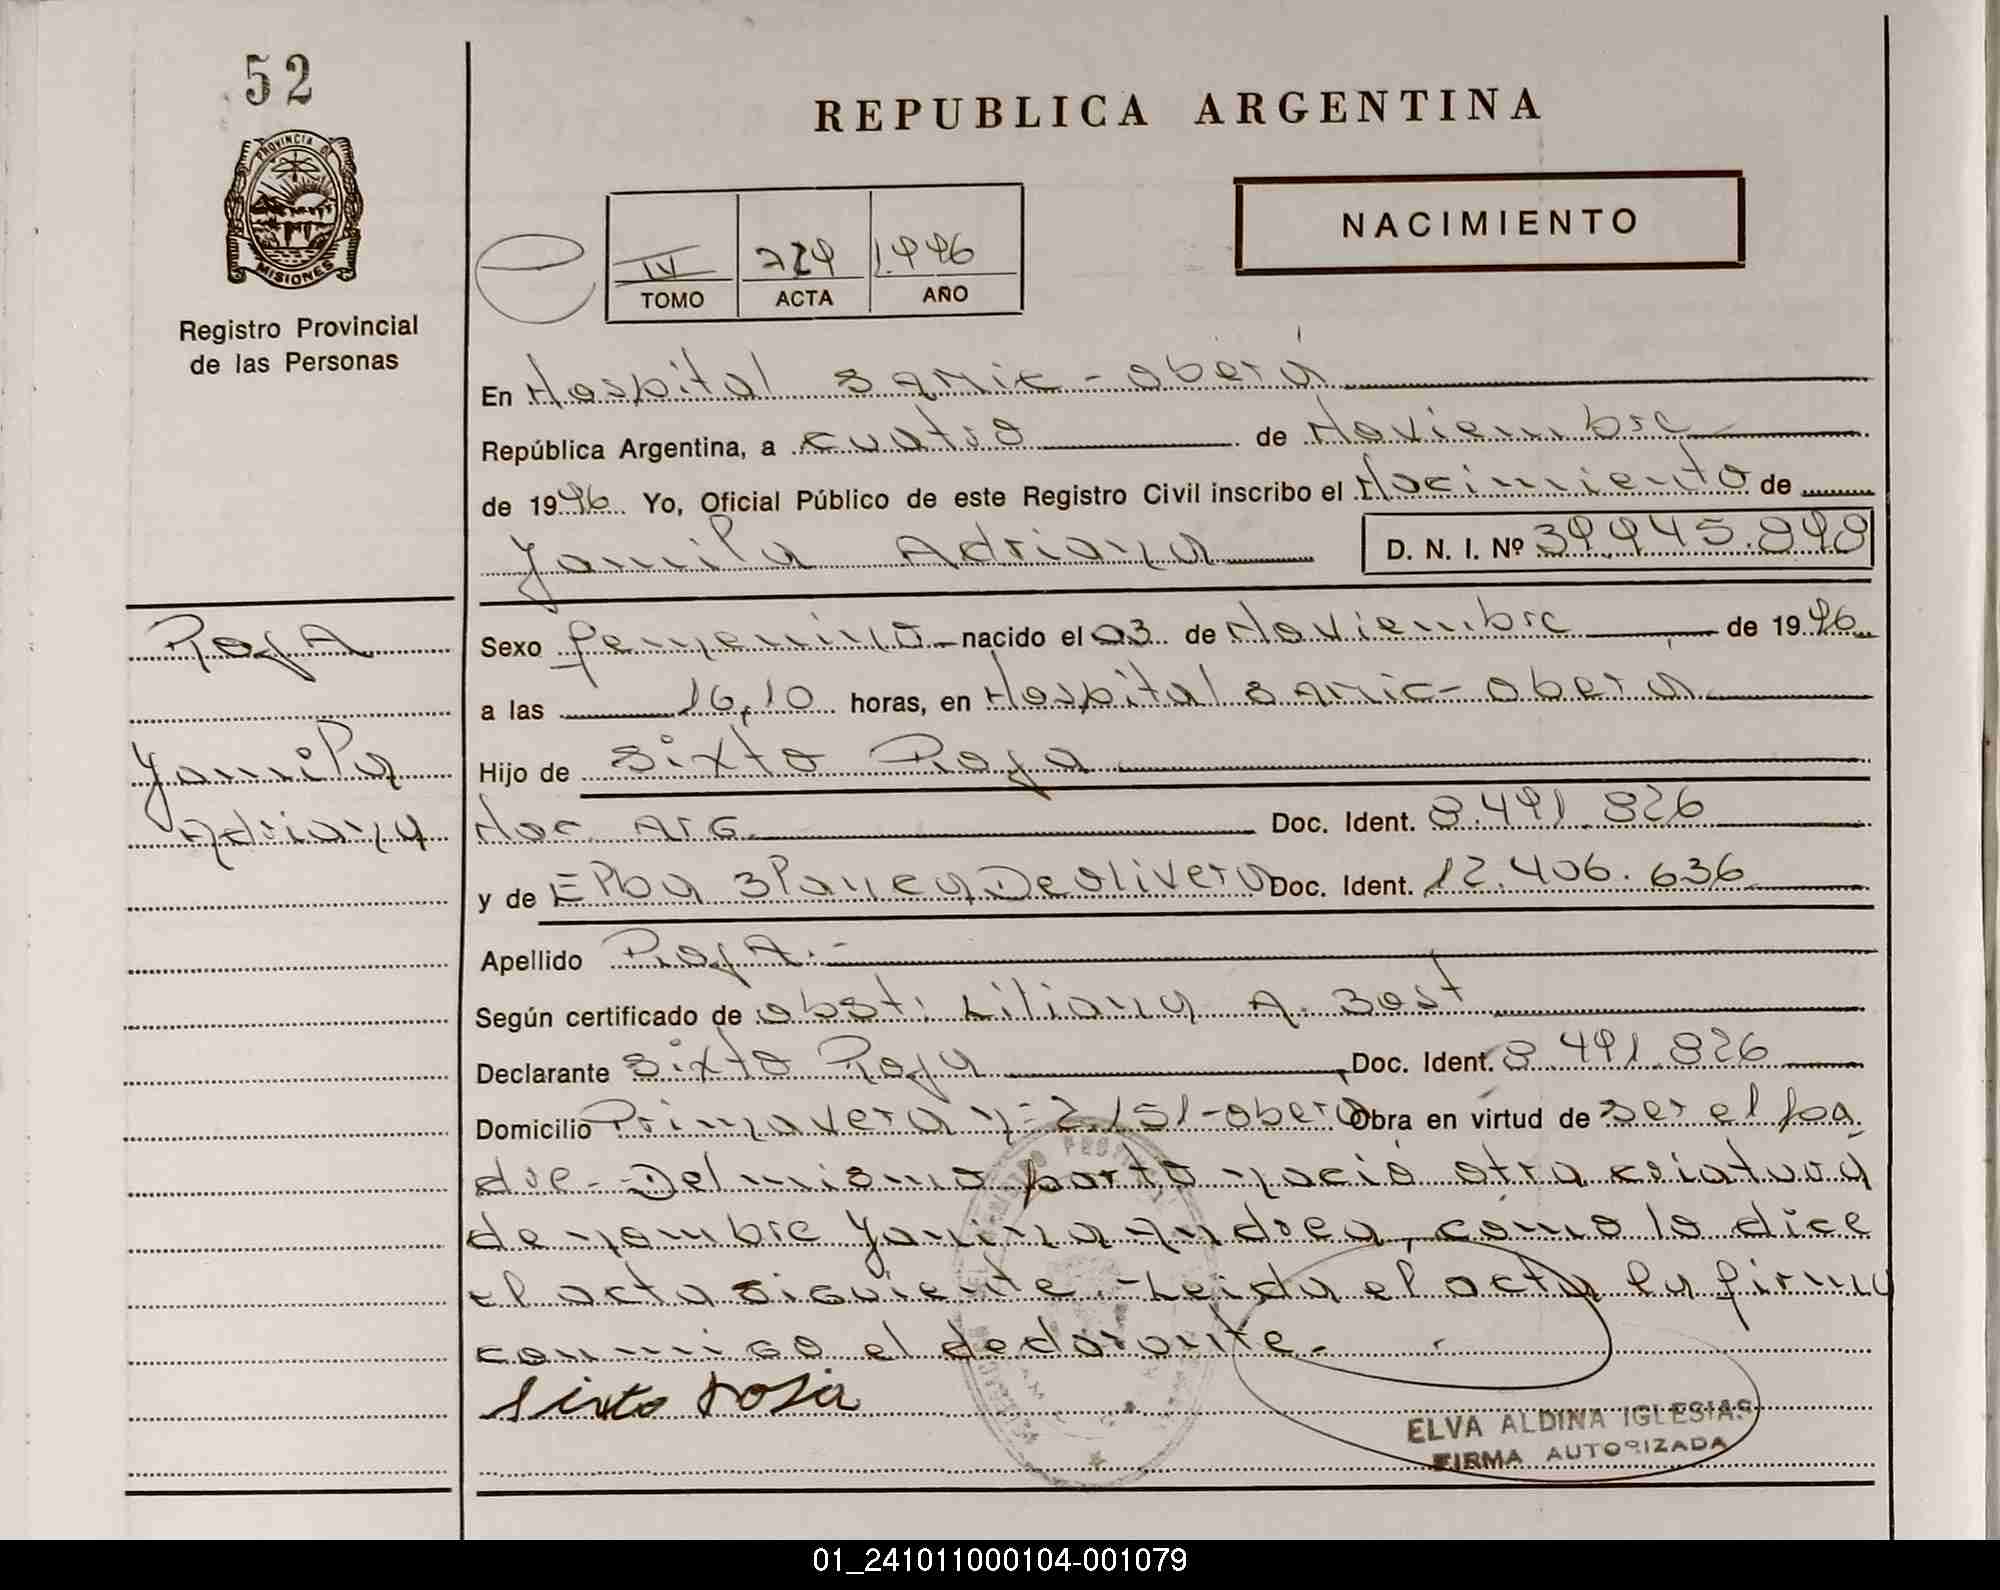 52
REPUBLICA ARGENTINA
PROVINCIA DE
MISIONES
Registro Provincial
de las Personas
NACIMIENTO
IV 729 1.996
TOMO ACTA AÑO
En Hospital SAMIC - oberá
República Argentina, a cuatro de Noviembre
de 1996 Yo, Oficial Público de este Registro Civil inscribo el Nacimiento de
Yamila Adriana D. N. I. Nº 39.945.898
Roja
Yamila
Adriana
Sexo femenino nacido el 03 de Noviembre de 1996
a las 16,10 horas, en Hospital SAMIC - oberá
Hijo de Sixto Roja
Nac. ARG. Doc. Ident. 8.491.826
y de Elba Blanca De olivera Doc. Ident. 12.406.636
Apellido RojA.-
Según certificado de obst: Liliana A. Bost
Declarante Sixto Roja Doc. Ident. 8.491.826
Domicilio Primavera nº 2.151 - oberá Obra en virtud de ser el pa
dre.- Del mismo parto nació otra criatura
de nombre Yanina Andrea, como lo dice
el acta siguiente.- Leida el acta la firma
conmigo el declarante.-
Sixto roja
ELVA ALDINA IGLESIAS
FIRMA AUTORIZADA
01_241011000104-001079